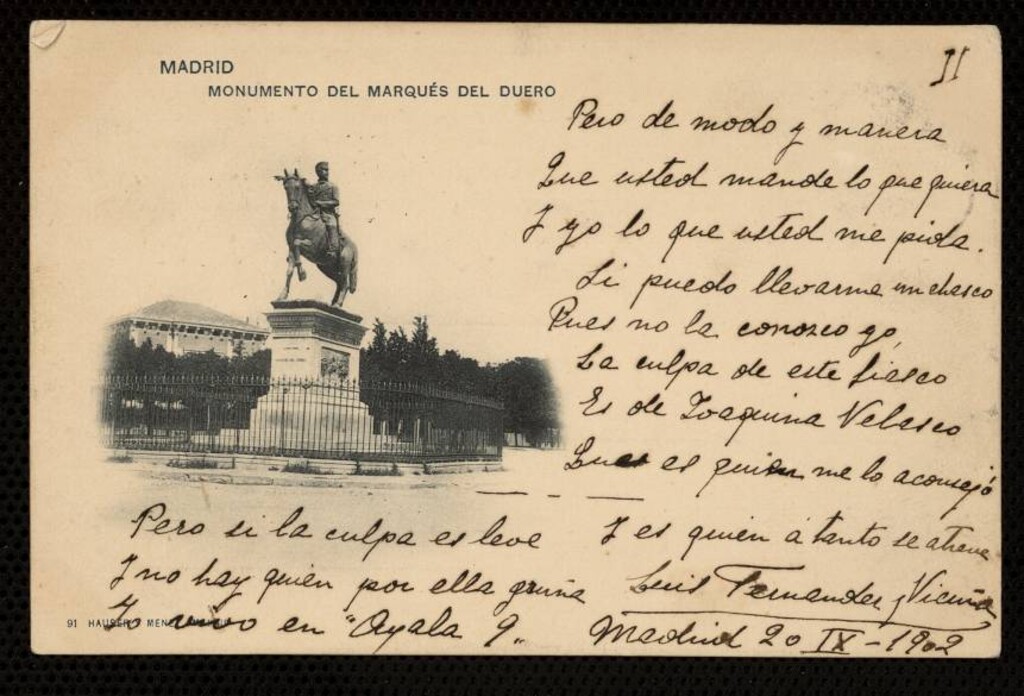 MADRID
MONUMENTO DEL MARQUÉS DEL DUERO
II
Pero de modo y manera
Que usted mande lo que quiera
Y yo lo que usted me pida.
Si puedo llevarme un chasco
Pues no la conozco yo,
La culpa de este fiasco
Es de Joaquina Velasco
Pues es quien me lo aconsejó
Pero si la culpa es leve
Y no hay quien por ella gruña
Yo vivo en "Ayala 9"
Y es quien á tanto se atreve
Luis Fernandez Vicuña
Madrid 20 IX-1902
91 HAUSER Y MENET